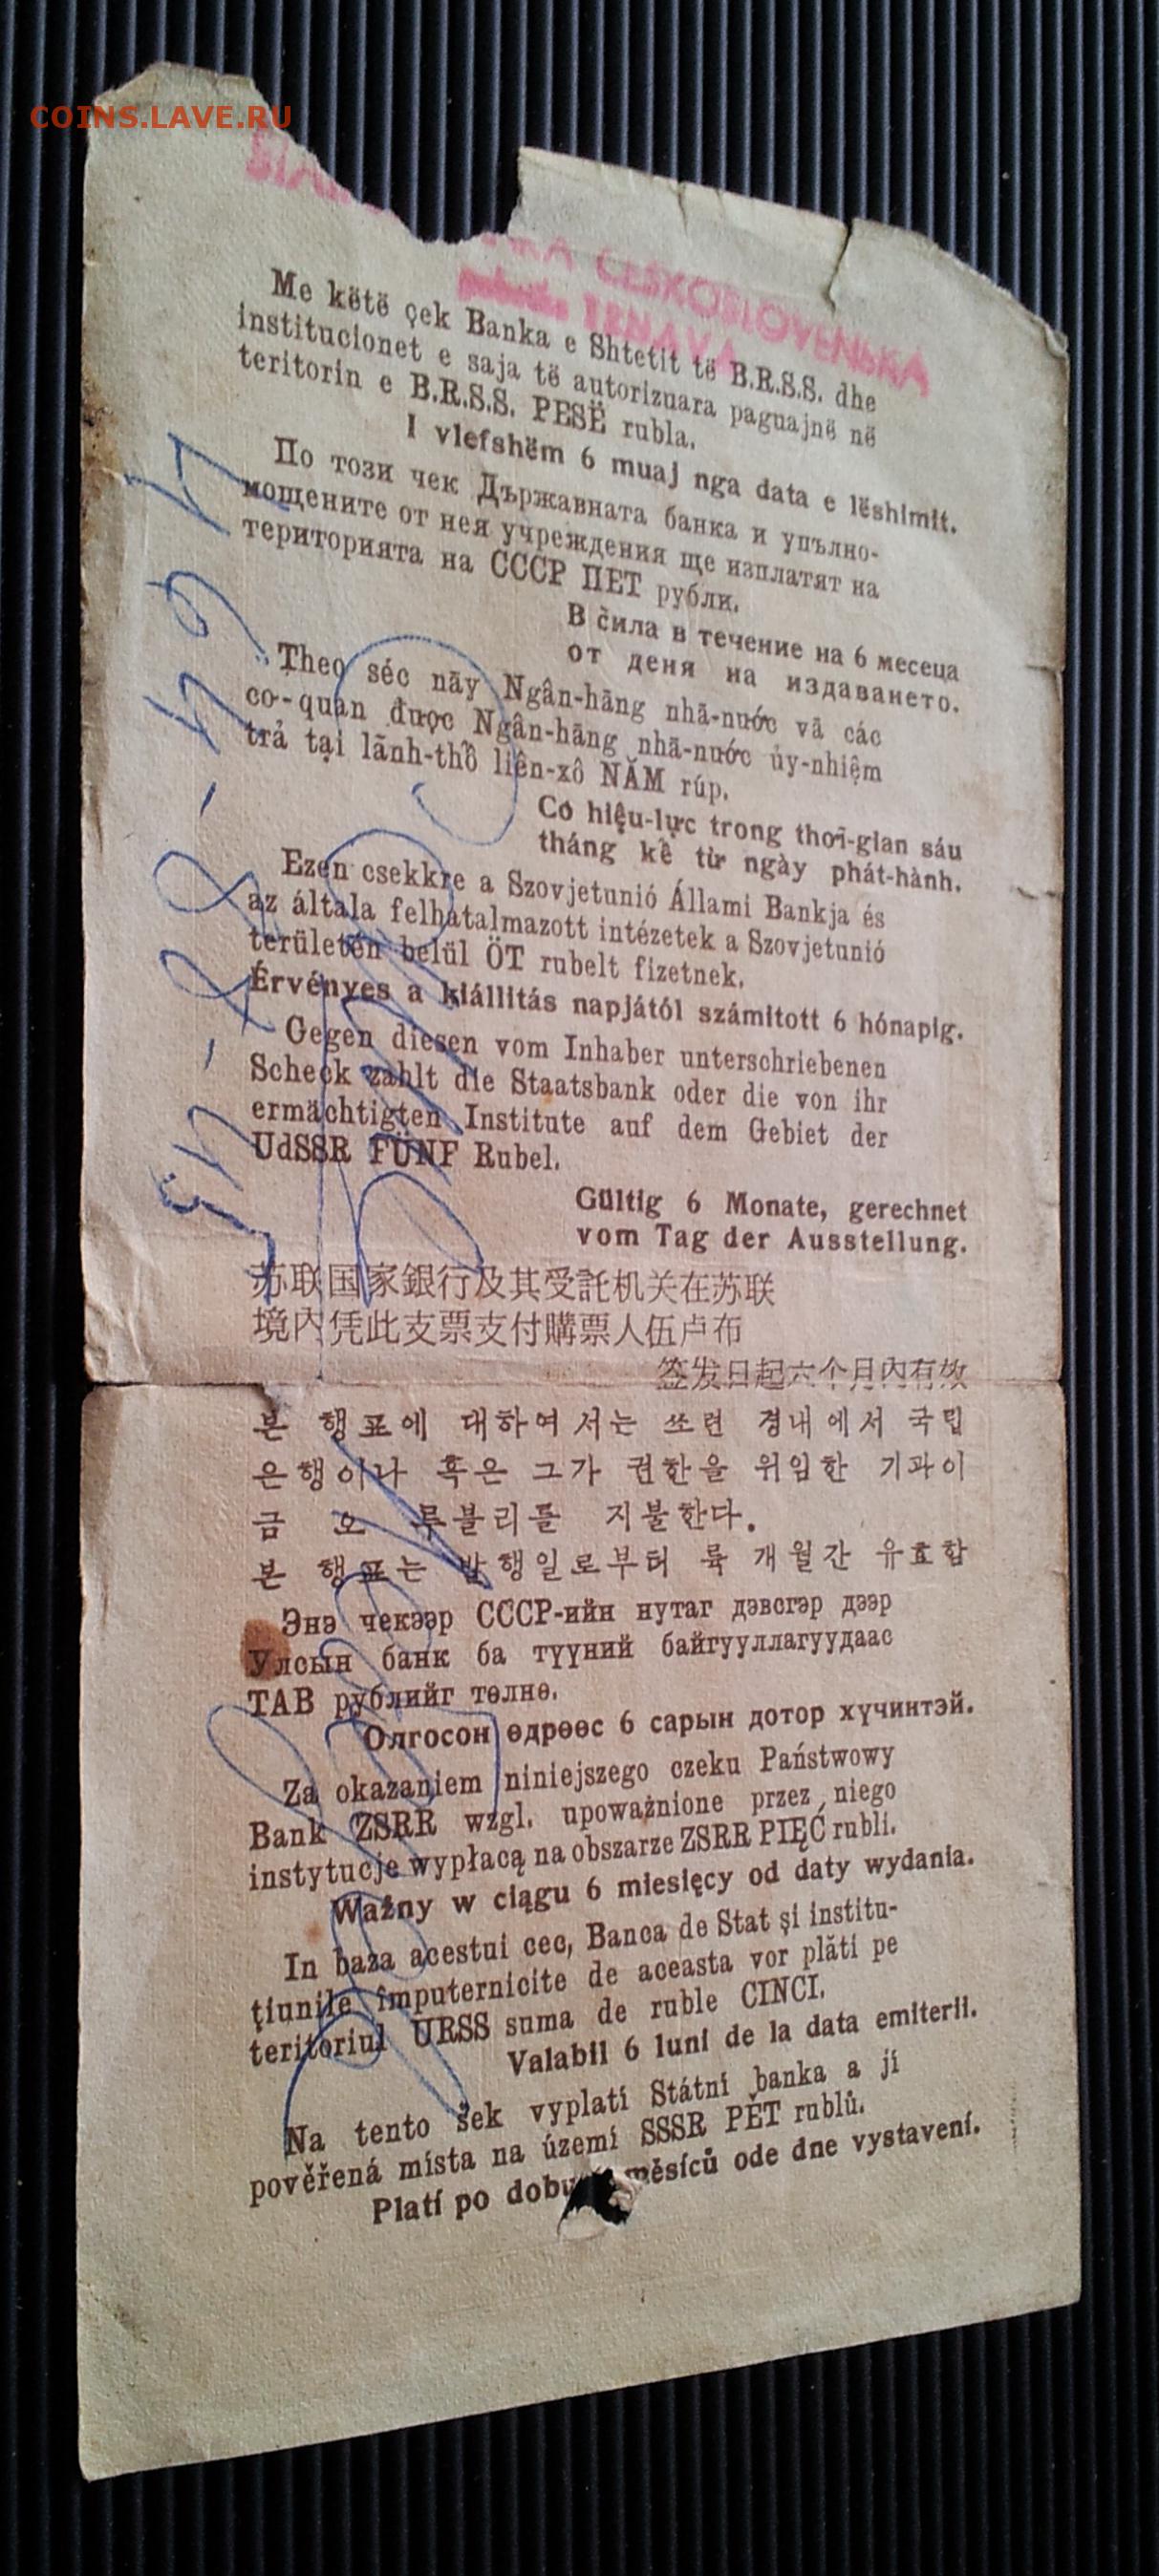 COINS.LAVE.RU
ČESKOSLOVENSKÁ
TRNAVA
Me këtë çek Banka e Shtetit të B.R.S.S. dhe
institucionet e saja të autorizuara paguajnë në
teritorin e B.R.S.S. PESË rubla.
I vlefshëm 6 muaj nga data e lëshimit.
По този чек Държавната банка и упълно-
мощените от нея учреждения ще изплатят на
територията на СССР ПЕТ рубли.
В сила в течение на 6 месеца
от деня на издаването.
Theo séc nãy Ngân-hãng nhã-nước vã các
cơ-quan được Ngân-hãng nhã-nước ủy-nhiệm
trả tại lãnh-thổ liên-xô NĂM rúp.
Có hiệu-lực trong thơì-gian sáu
tháng kể từ ngày phát-hành.
Ezen csekkre a Szovjetunió Állami Bankja és
az általa felhatalmazott intézetek a Szovjetunió
területén belül ÖT rubelt fizetnek.
Érvényes a kiállitás napjától számitott 6 hónapig.
Gegen diesen vom Inhaber unterschriebenen
Scheck zahlt die Staatsbank oder die von ihr
ermächtigten Institute auf dem Gebiet der
UdSSR FÜNF Rubel.
Gültig 6 Monate, gerechnet
vom Tag der Ausstellung.
苏联国家銀行及其受託机关在苏联
境內凭此支票支付購票人伍卢布
签发日起六个月內有效
본 행표에 대하여서는 쏘련 경내에서 국립
은행이나 혹은 그가 권한을 위임한 기관이
금 오 루블리를 지불한다.
본 행표는 발행일로부터 륙 개월간 유효함
Энэ чекээр СССР-ийн нутаг дэвсгэр дээр
Улсын банк ба түүний байгууллагуудаас
ТАВ рублийг төлнө.
Олгосон өдрөөс 6 сарын дотор хүчинтэй.
Za okazaniem niniejszego czeku Państwowy
Bank ZSRR wzgl. upoważnione przez niego
instytucje wypłacą na obszarze ZSRR PIĘĆ rubli.
Ważny w ciągu 6 miesięcy od daty wydania.
In baza acestui cec, Banca de Stat şi institu-
ţiunile împuternicite de aceasta vor plăti pe
teritoriul URSS suma de ruble CINCI.
Valabil 6 luni de la data emiterii.
Na tento šek vyplatí Státní banka a jí
pověřená místa na území SSSR PĚT rublů.
Platí po dobu měsíců ode dne vystavení.